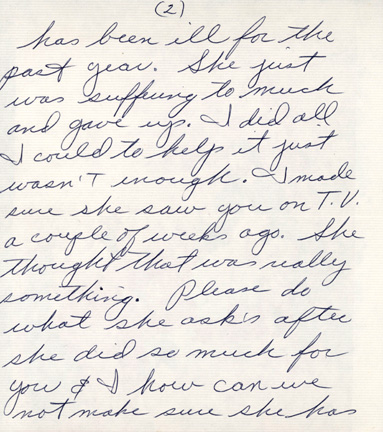 (2)
has been ill for the
past year. She just
was suffering to much
and gave up. I did all
I could to help it just
wasn't enough. I made
sure she saw you on T.V.
a couple of weeks ago. She
thought that was really
something. Please do
what she ask's after
she did so much for
you & I how can we
not make sure she has